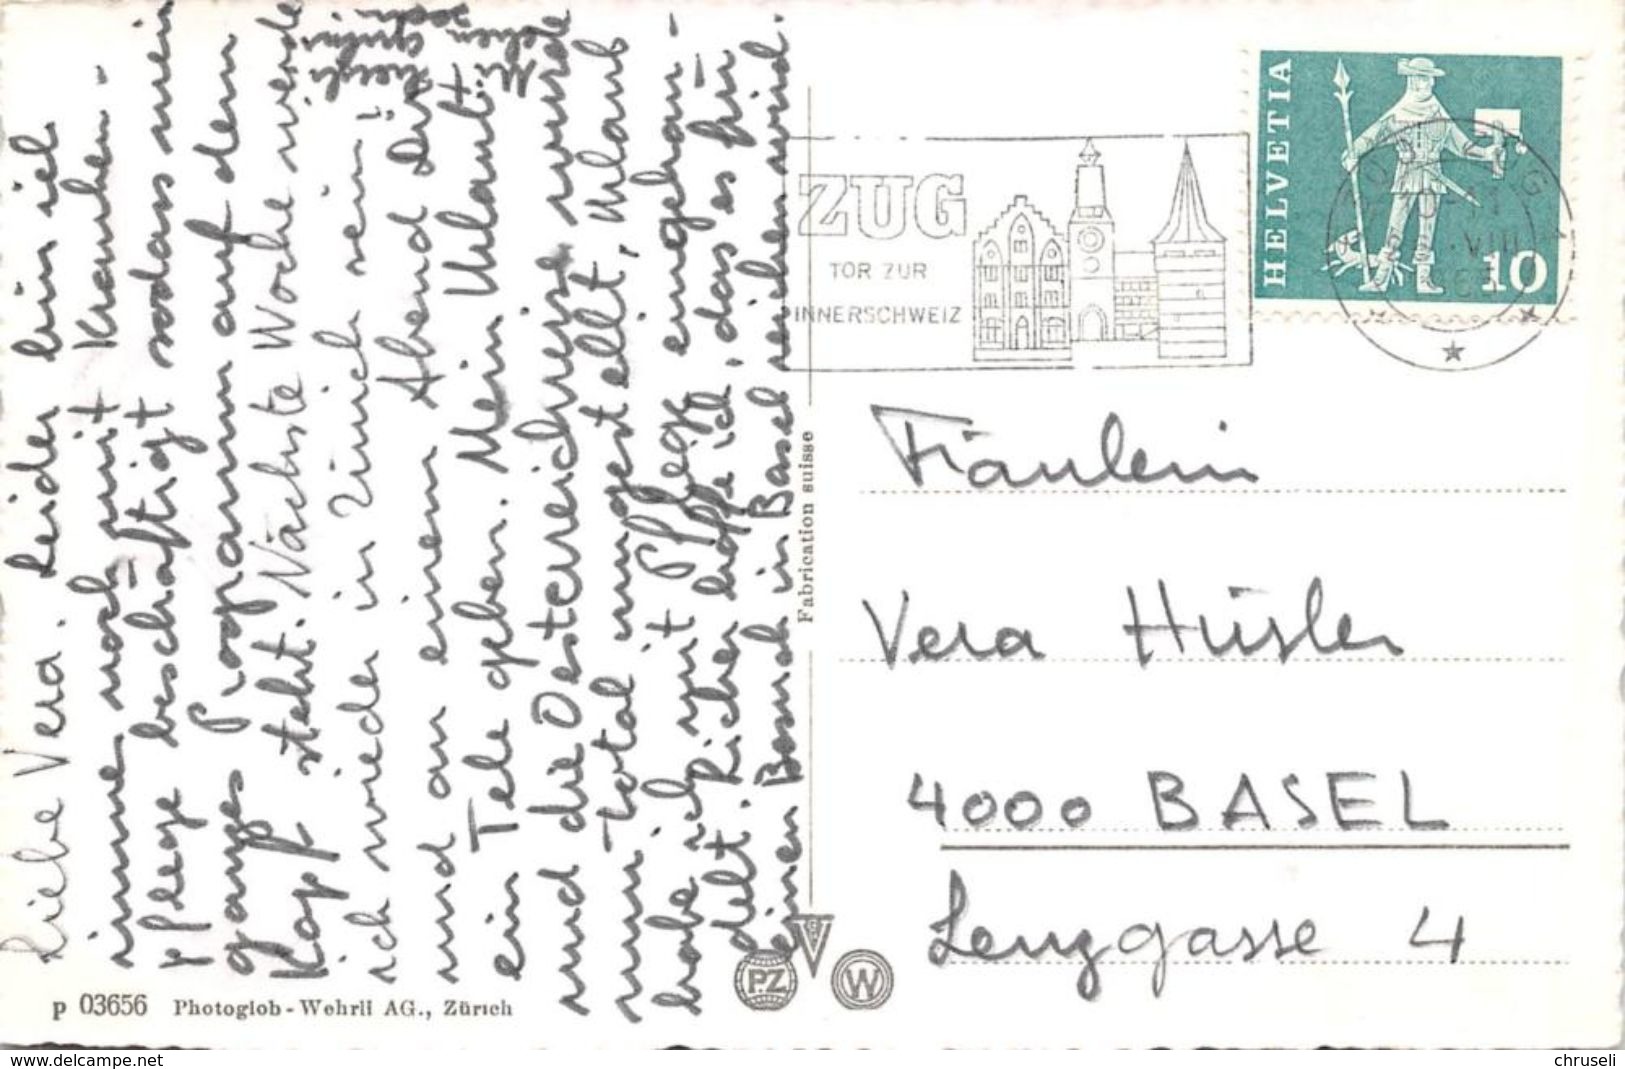 Liebe Vera. Leider bin ich
immer noch mit Kranken-
pflege beschäftigt sodass mein
ganzes Programm auf dem
Kopf steht. Nächste Woche werde
ich wieder in Zürich sein
und an einem Abend Dir
ein Tele geben. Mein Urlaub
und die Oesterreichreise wurde
nun total umgestellt, Urlaub
habe ich mit Pflege eingehan-
delt. Sicher hoffe ich, das es für
einen Besuch in Basel reichen wird.
HELVETIA
10
ZUG
TOR ZUR
INNERSCHWEIZ
Fräulein
Vera Hüsler
4000 BASEL
Lenzgasse 4
Fabrication suisse
P.Z
W
p 03656 Photoglob-Wehrli AG., Zürich
www.delcampe.net
chruseli